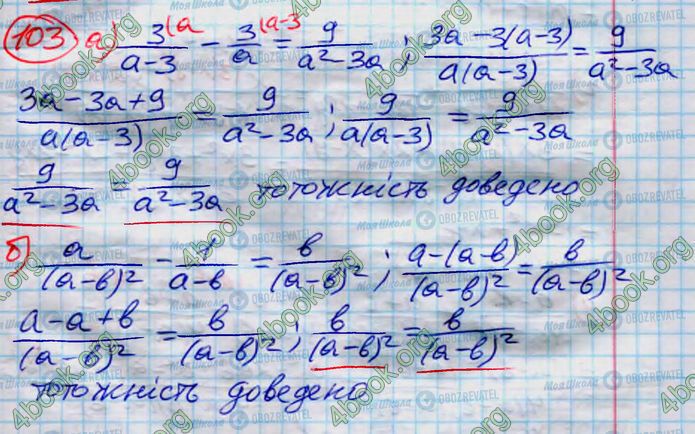 103 а) 3/(a-3) |a - 3/a |a-3 = 9/(a²-3a) ; (3a-3(a-3))/(a(a-3)) = 9/(a²-3a)
(3a-3a+9)/(a(a-3)) = 9/(a²-3a) ; 9/(a(a-3)) = 9/(a²-3a)
9/(a²-3a) = 9/(a²-3a) тотожність доведено
б) a/(a-в)² - 1/(a-в) = в/(a-в)² ; (a-(a-в))/(a-в)² = в/(a-в)²
(a-a+в)/(a-в)² = в/(a-в)² ; в/(a-в)² = в/(a-в)²
тотожність доведено
4book.org
Моя Школа
OBOZREVATEL